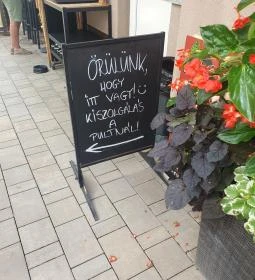 ÖRÜLÜNK,
HOGY
ITT VAGY!
KISZOLGÁLÁS
A
PULTNÁL!